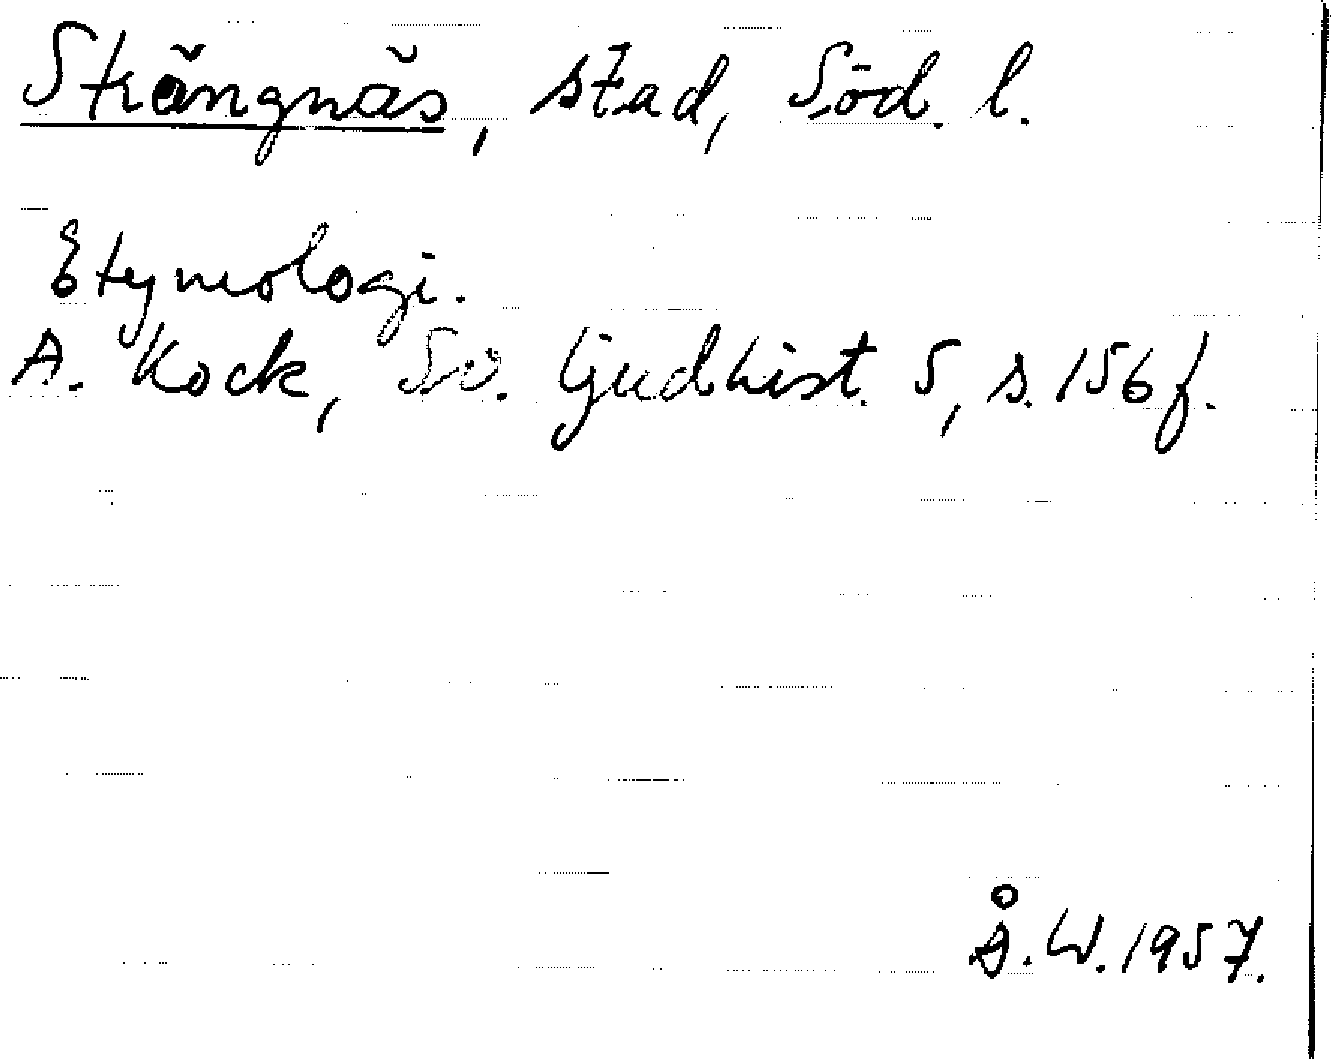 Strängnäs, stad, Söd. l.
Etymologi.
A. Kock, Sv. ljudhist. 5, s. 156 f.
Å. W. 1957.